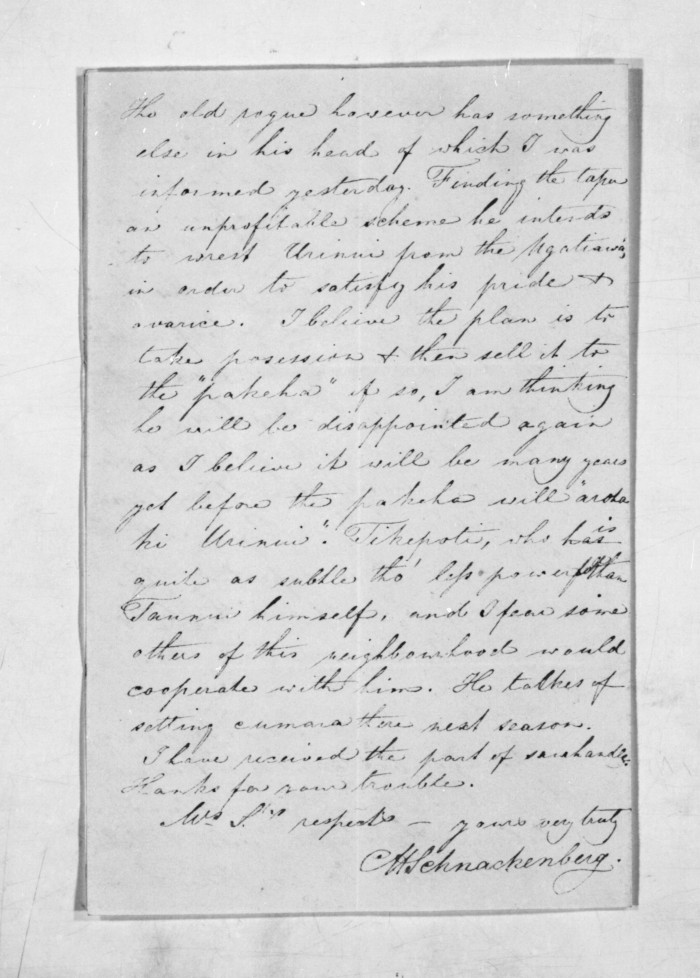 The old rogue however has something
else in his head of which I was
informed yesterday. Finding the tapu
an unprofitable scheme he intends
to wrest Urinui from the Ngatiawa,
in order to satisfy his pride &
avarice. I believe the plan is to
take posession & then sell it to
the "pakeha" if so, I am thinking
he will be disappointed again
as I believe it will be many years
yet before the pakeha will "aroha
ki Urinui". Tikepoti, who has is
quite as subtle tho' less powerful than
Taunui himself, and I fear some
others of this neighbourhood would
cooperate with him. He talkes of
setting cumara there next season.
I have received the part of
Thanks for your trouble.
Mrs S.'s respects – yours very truly
CHSchnackenberg.